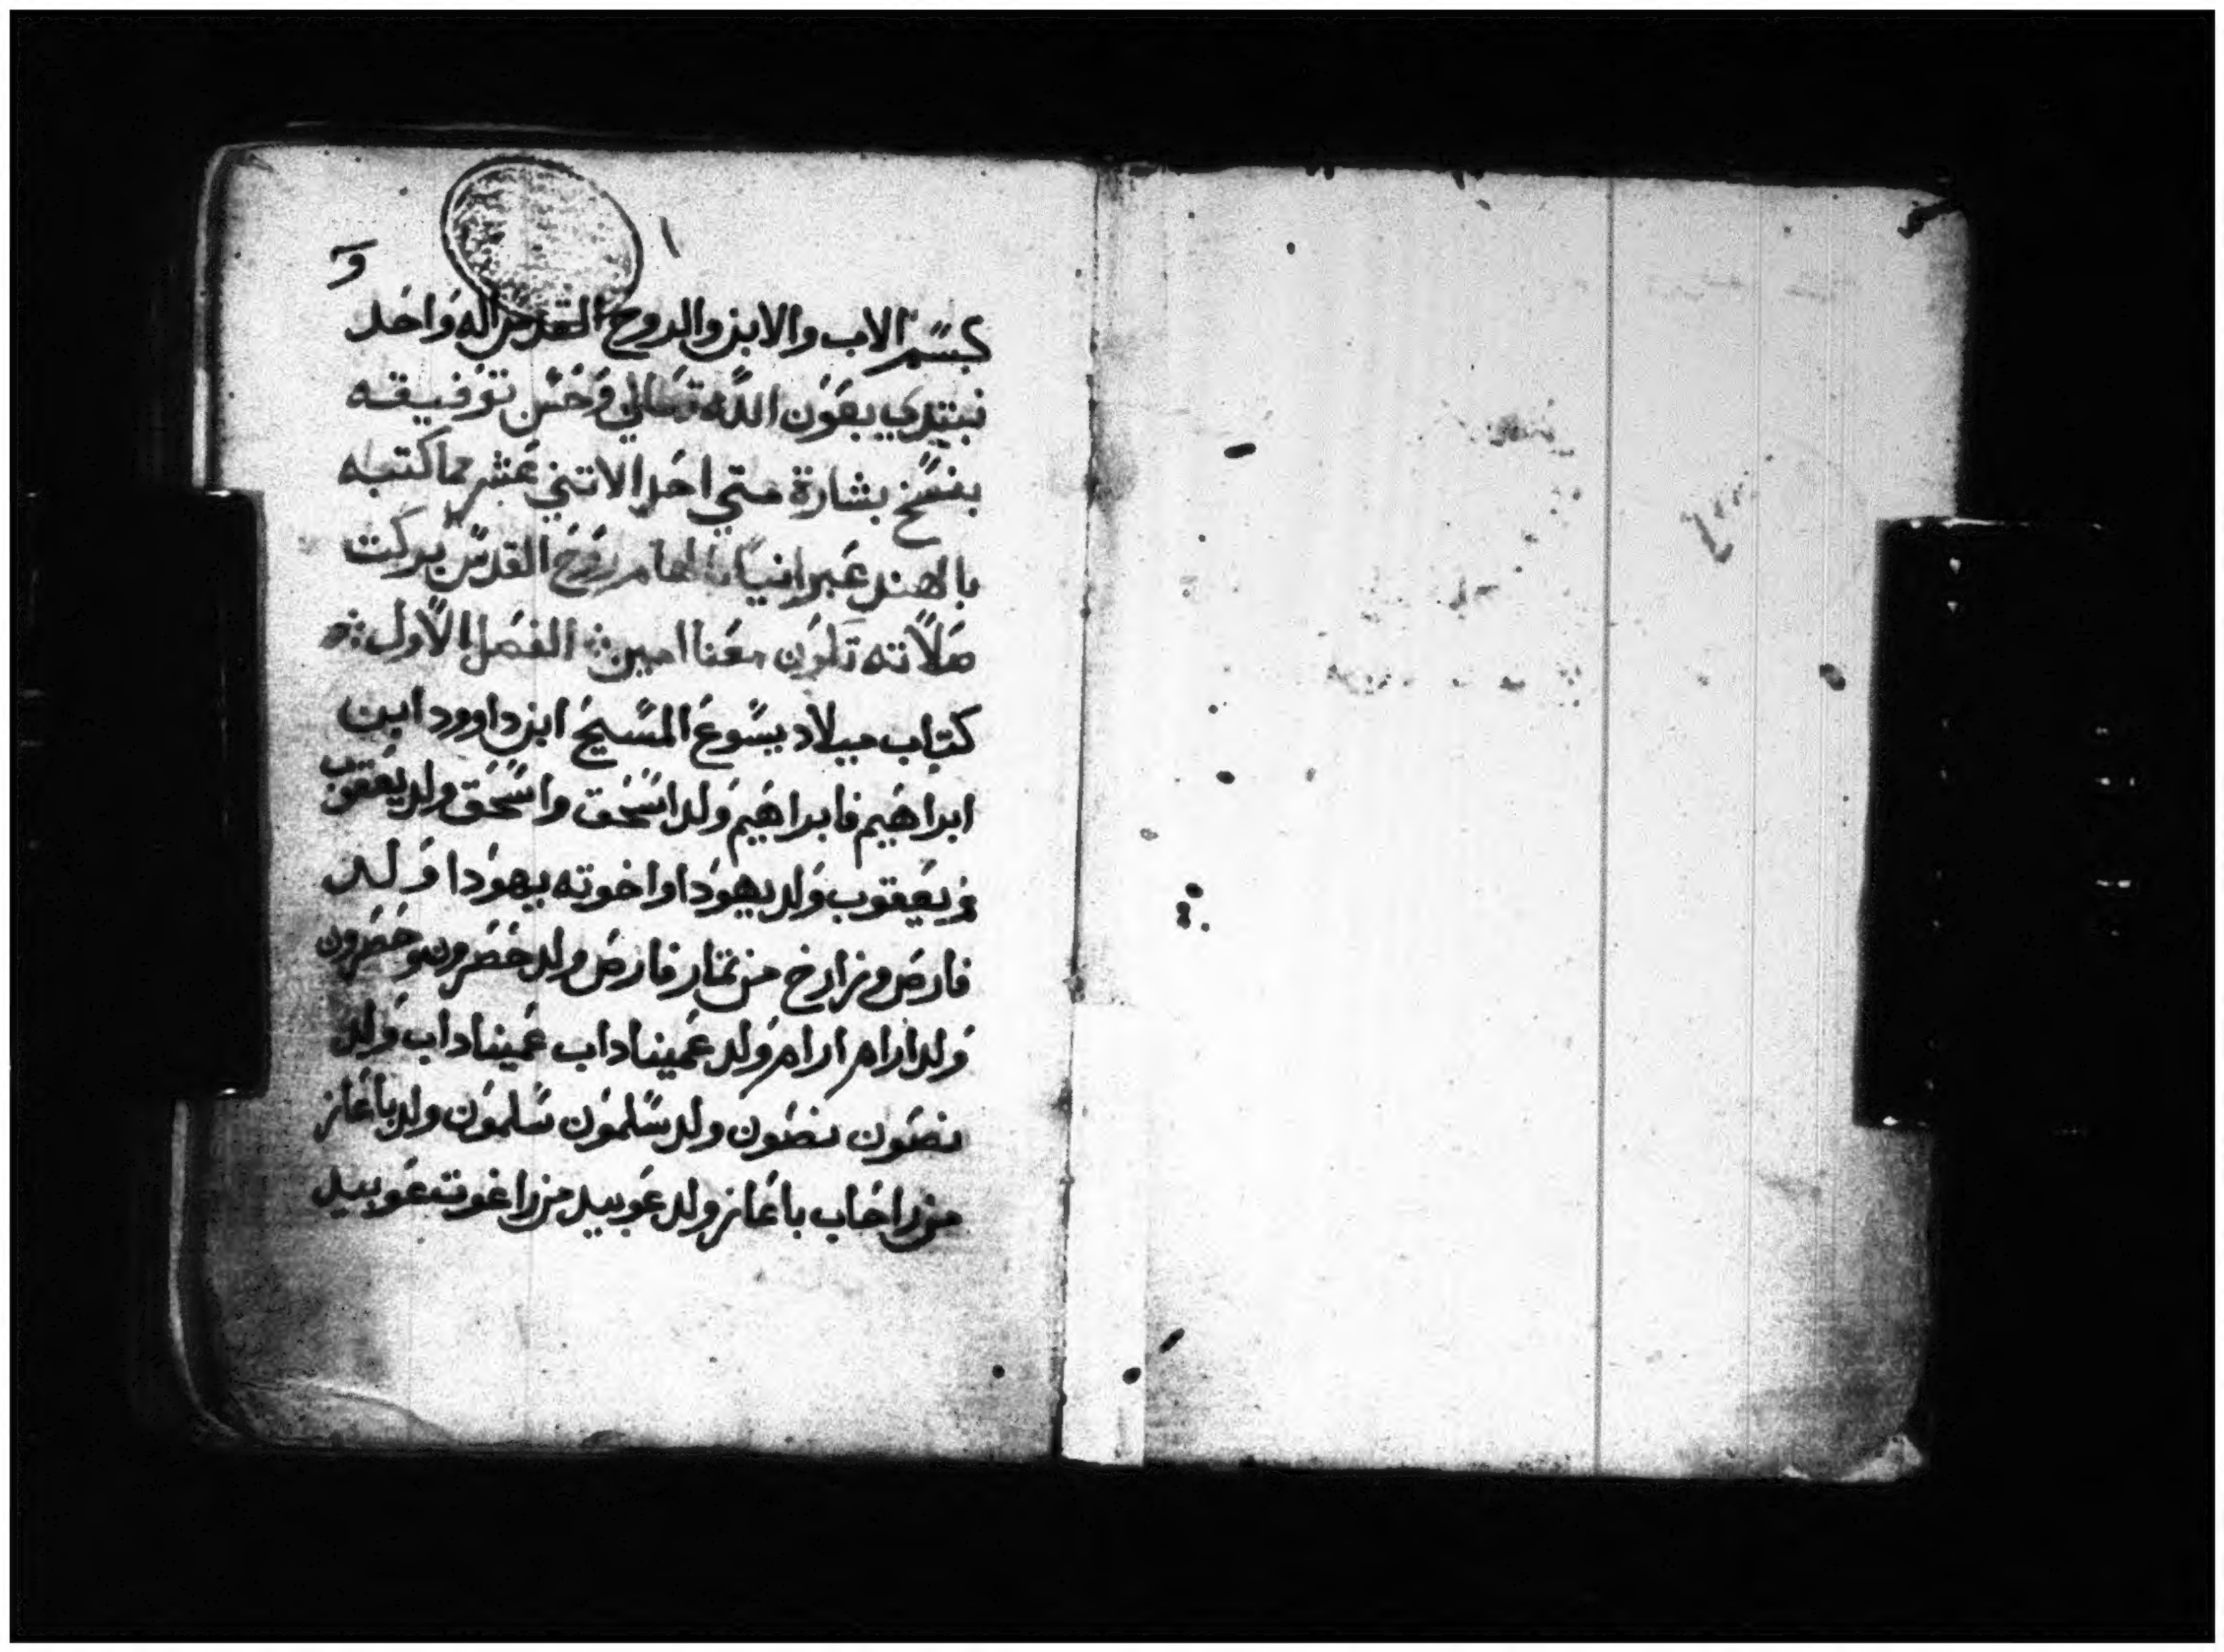 ١
بسم الاب والابن والروح القدس اله واحد
نبتدي بعون الله تعالي وحسن توفيقه
بنسخ بشارة متي احد الاتني عشر مما كتبه
بالهند عبرانيا بالهام روح القدس بركت
صلاته تكون معنا امين ۞ الفصل الاول ۞
كتاب ميلاد يسوع المسيح ابن داوود ابن
ابراهيم فابراهيم ولد اسحق واسحق ولد يعقوب
ويعقوب ولد يهودا واخوته يهودا ولد
فارص وزارخ من تمار فارص ولد حصرون وحصرون
ولد ارام ارام ولد عميناداب عميناداب ولد
نصون نصون ولد سلمون سلمون ولد باعاز
من راحاب باعاز ولد عوبيد من راعوت عوبيد